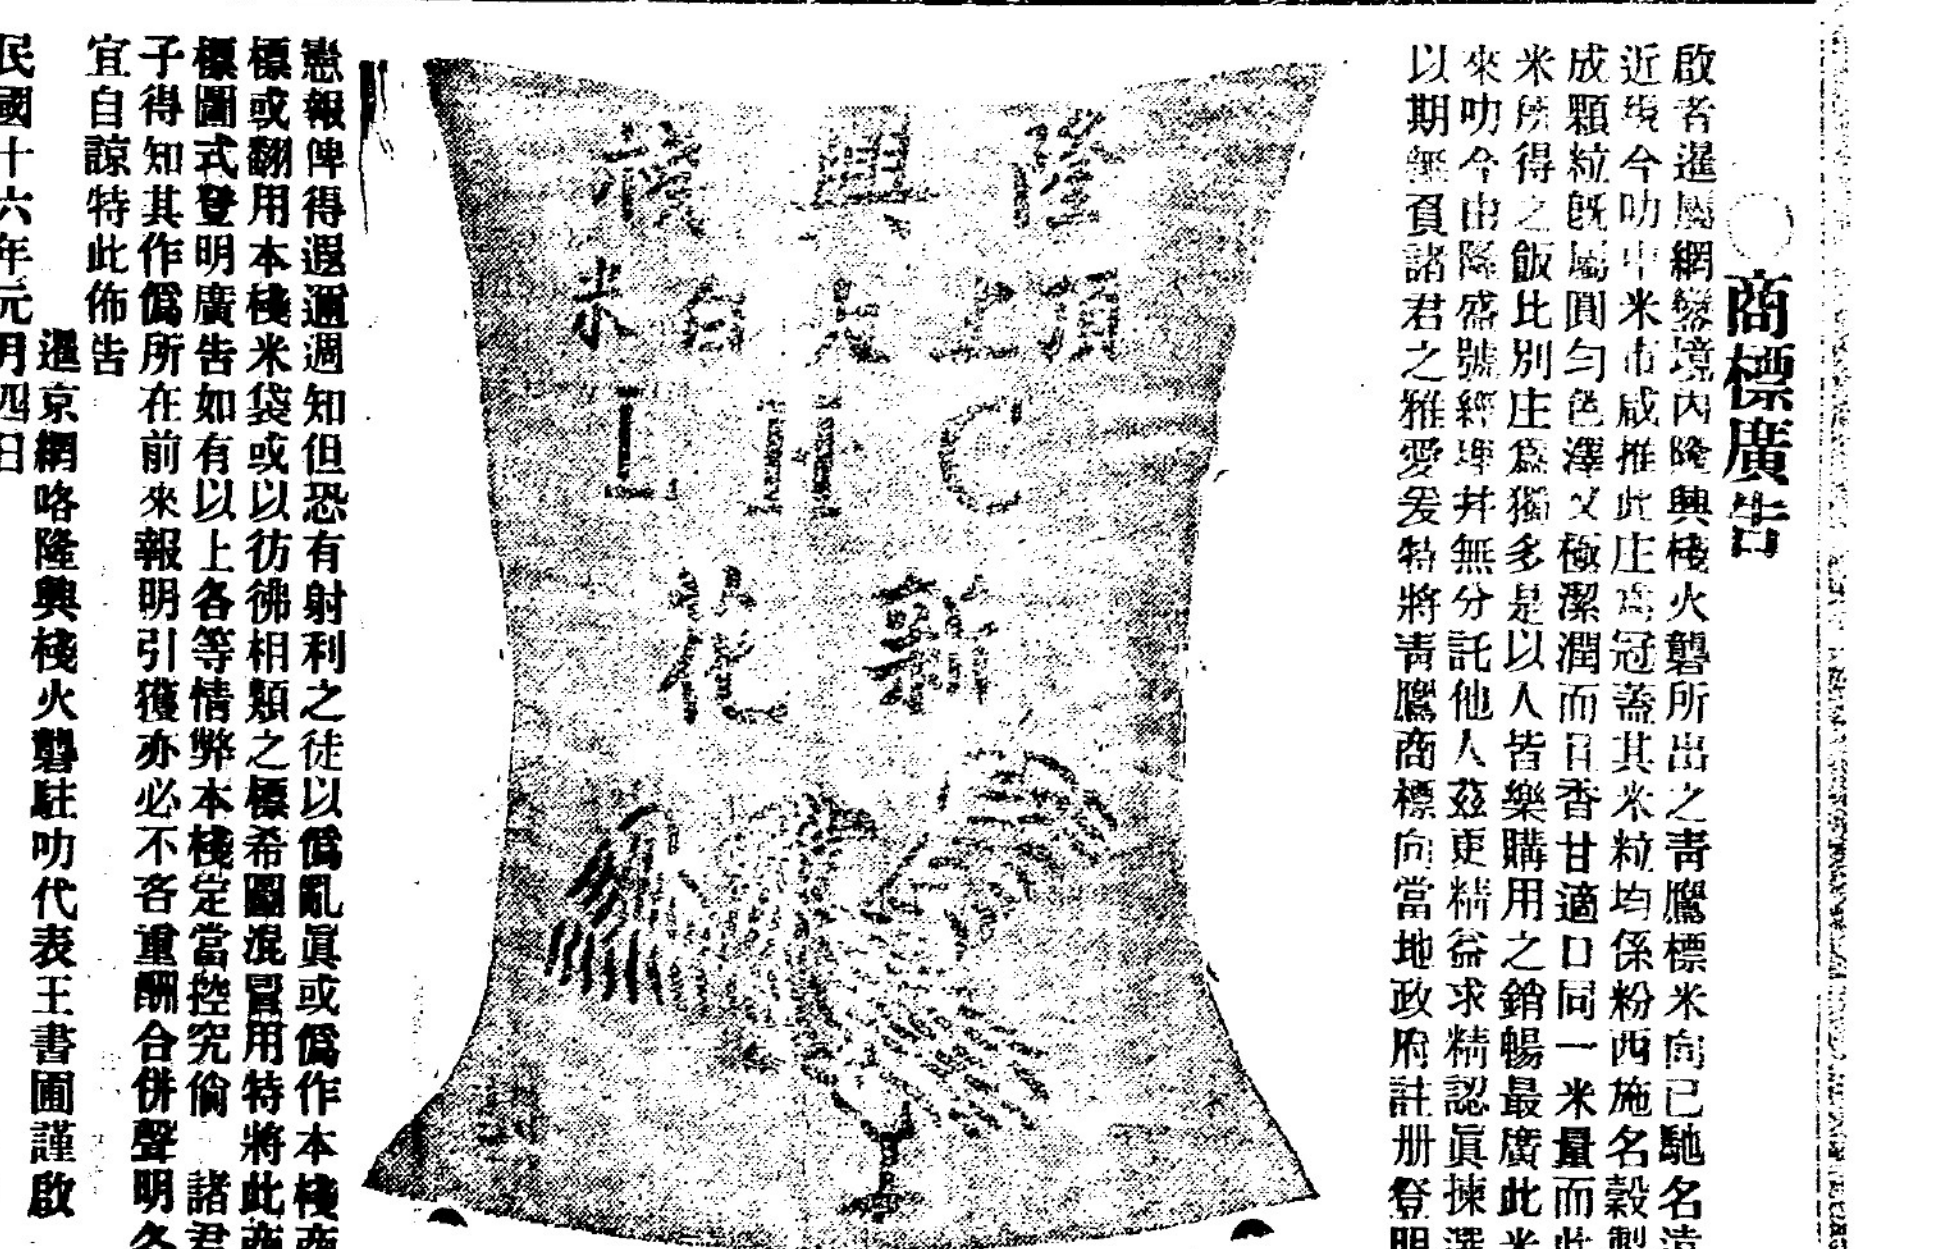 商標廣告
啟者暹屬網變境內隆興棧火礱所出之青鷹標米向已馳名遠
近現今叻中米市咸推此庄為冠蓋其米粒均係粉西施名穀製
成顆粒既屬圓勻色澤又極潔潤而且香甘適口同一米量而此
米所得之飯比別庄爲獨多是以人皆樂購用之銷暢最廣此米
來叻今由隆盛號經理幷無分託他人茲更精益求精認眞揀選
以期無負諸君之雅愛爰特將靑鷹商標向當地政府註册登明
隆興棧
頂上尖白米
C H L
憲報俾得遐邇週知但恐有射利之徒以僞亂眞或僞作本棧商
標或翻用本棧米袋或以彷彿相類之標希圖混冒用特將此商
標圖式登明廣告如有以上各等情弊本棧定當控究倘 諸君
子得知其作僞所在前來報明引獲亦必不吝重酬合併聲明各
宜自諒特此佈告
暹京網咯隆興棧火礱駐叻代表王書圃謹啟
民國十六年元月四日